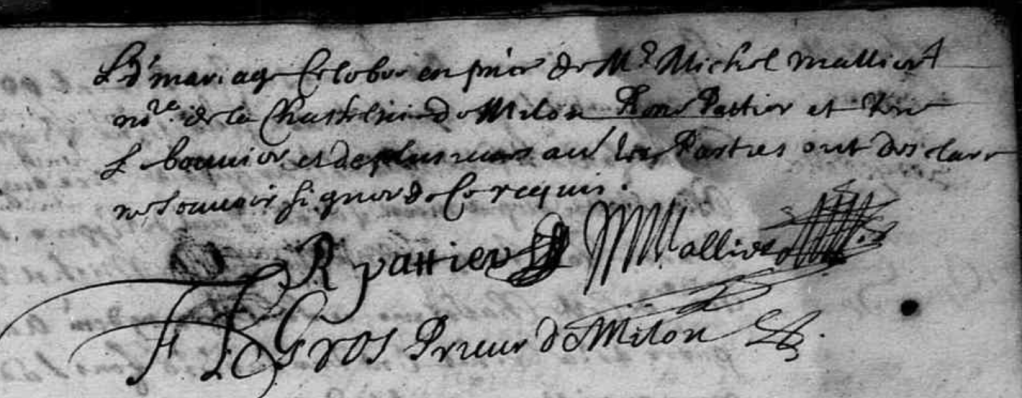 Led' mariage Celebré en pñce de Me Michel Mallier
nore de la Chatelnie de Milon René Pattier et René
et de plusieurs aues les Parties ont desclare
ne scavoir signer de ce requis.
R pattier MMallier
F LeGros Prieur de Milon